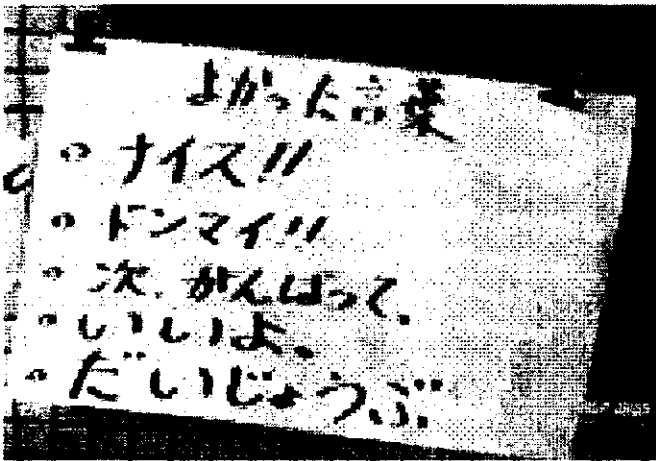 よかった言葉
。ナイス!!
。ドンマイ!!
。次、がんばって、
。いいよ、
。だいじょうぶ